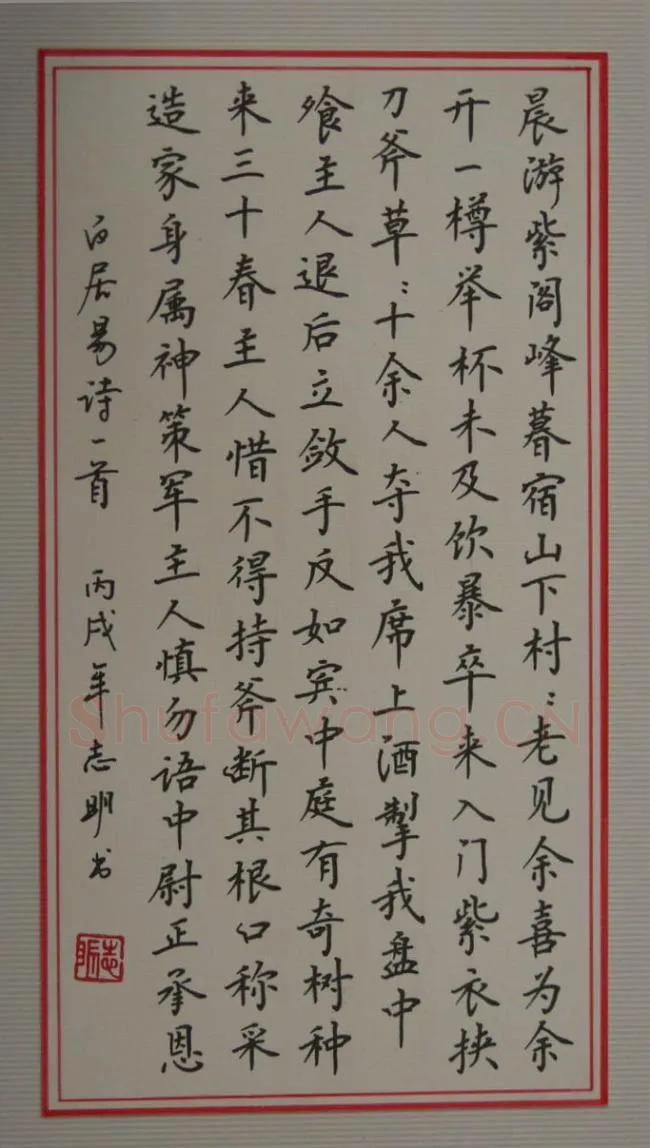 晨游紫阁峰暮宿山下村：老见余喜为余
开一樽举杯未及饮暴卒来入门紫衣挟
刀斧草：十余人夺我席上酒掣我盘中
飧主人退后立敛手反如宾中庭有奇树种
来三十春主人惜不得持斧断其根口称采
造家身属神策军主人慎勿语中尉正承恩
白居易诗一首 丙戌年志明书
Shufawang.CN